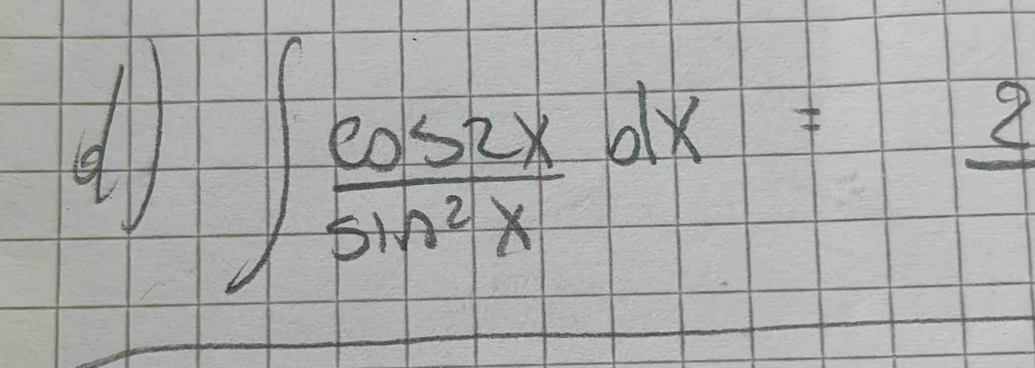 d) ∫ cos2x/sin²x dx = 2